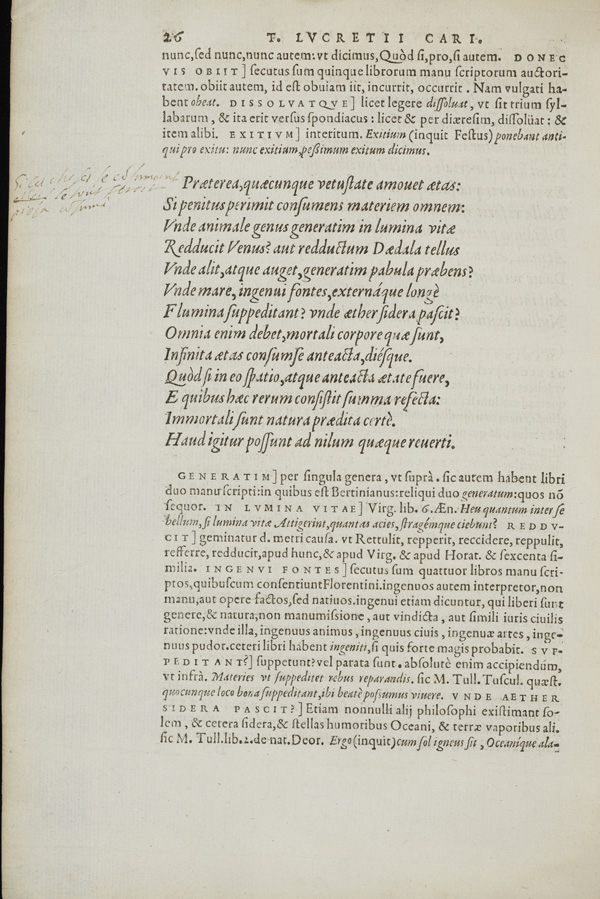 26 T. LVCRETII CARI.
nunc, sed nunc, nunc autem: vt dicimus, Quòd si, pro, si autem. DONEC
VIS OBIIT] secutus sum quinque librorum manu scriptorum auctori-
tatem. obiit autem, id est obuiam iit, incurrit, occurrit. Nam vulgati ha-
bent obeat. DISSOLVATQVE] licet legere dissoluat, vt sit trium syl-
labarum, & ita erit versus spondiacus: licet & per diæresim, dissolüat: &
item alibi. EXITIVM] interitum. Exitium (inquit Festus) ponebant anti-
qui pro exitu: nunc exitium, pessimum exitum dicimus.
Præterea, quæcunque vetustate amouet ætas:
Si penitus perimit consumens materiem omnem:
Vnde animale genus generatim in lumina vitæ
Redducit Venus? aut redductum Dædala tellus
Vnde alit, atque auget, generatim pabula præbens?
Vnde mare, ingenui fontes, externáque longè
Flumina suppeditant? vnde æther sidera pascit?
Omnia enim debet, mortali corpore quæ sunt,
Infinita ætas consumse anteacta, diésque.
Quòd si in eo spatio, atque anteacta ætate fuere,
E quibus hæc rerum consistit summa refecta:
Immortali sunt natura prædita certè.
Haud igitur possunt ad nilum quæque reuerti.
GENERATIM] per singula genera, vt suprà. sic autem habent libri
duo manuscripti: in quibus est Bertinianus: reliqui duo generatum: quos nō
sequor. IN LVMINA VITAE] Virg. lib. 6. Æn. Heu quantum inter se
bellum, si lumina vitæ Attigerint, quantas acies, stragémque ciebunt? REDDV-
CIT] geminatur d. metri causa. vt Rettulit, repperit, reccidere, reppulit,
refferre, redducit, apud hunc, & apud Virg. & apud Horat. & sexcenta si-
milia. INGENVI FONTES] secutus sum quattuor libros manu scri-
ptos, quibuscum consentiunt Florentini. ingenuos autem interpretor, non
manu, aut opere factos, sed natiuos. ingenui etiam dicuntur, qui liberi sunt
genere, & natura, non manumissione, aut vindicta, aut simili iuris ciuilis
ratione: vnde illa, ingenuus animus, ingenuus ciuis, ingenuæ artes, inge-
nuus pudor. ceteri libri habent ingeniti, si quis forte magis probabit. SVP-
PEDITANT?] suppetunt? vel parata sunt. absolutè enim accipiendum,
vt infrà. Materies vt suppeditet rebus reparandis. sic M. Tull. Tuscul. quæst.
quocunque loco bona suppeditant, ibi beatè possumus viuere. VNDE AETHER
SIDERA PASCIT?] Etiam nonnulli alij philosophi existimant so-
lem, & cetera sidera, & stellas humoribus Oceani, & terræ vaporibus ali.
sic M. Tull. lib. 2. de nat. Deor. Ergo (inquit) cum sol igneus sit, Oceaníque ala-